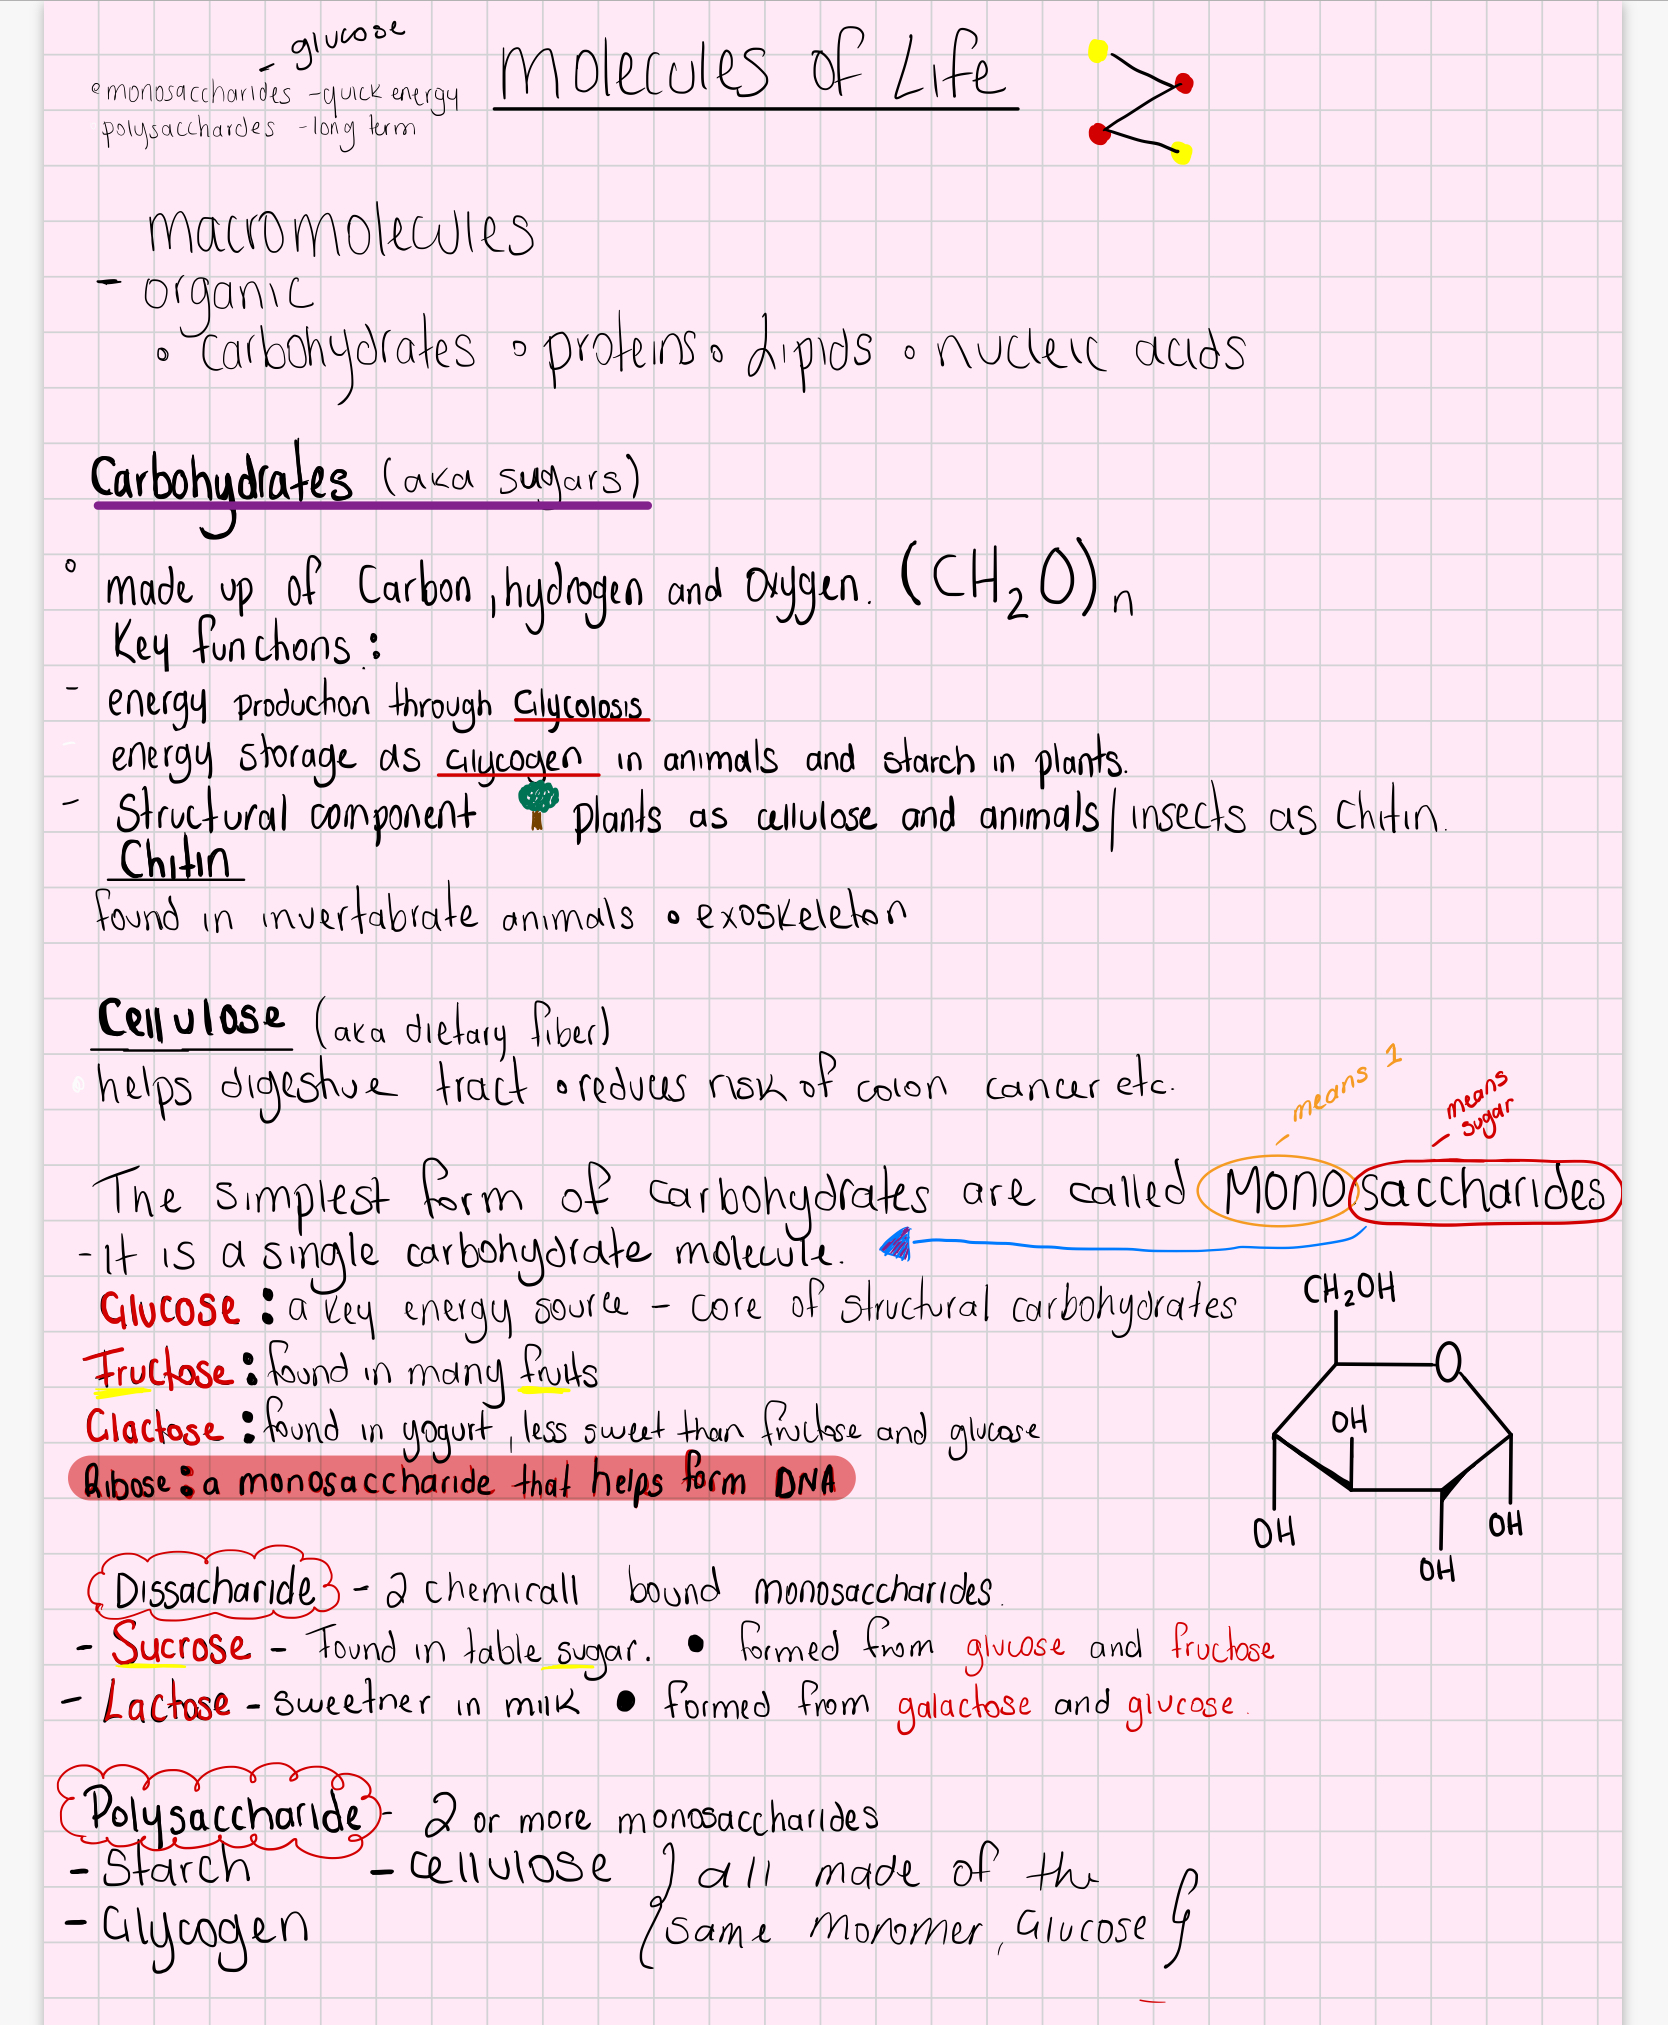 - glucose
Molecules of Life
° monosaccharides - quick energy
polysacchardes - long term
macromolecules
- organic
° carbohydrates ° proteins ° Lipids ° nucleic acids
Carbohydrates (aka sugars)
° made up of Carbon, hydrogen and Oxygen. (CH₂O)n
Key functions:
- energy production through Glycolosis
- energy storage as Glycogen in animals and starch in plants.
- Structural component plants as cellulose and animals/insects as chitin.
Chitin
found in invertabrate animals • exoskeleton
Cellulose (aka dietary fiber)
° helps digestive tract • reduces risk of colon cancer etc.
- means 1
- means
sugar
The simplest form of carbohydrates are called Monosaccharides
- it is a single carbohydrate molecule.
Glucose: a key energy source - core of structural carbohydrates
Fructose: found in many fruits
Glactose: found in yogurt, less sweet than fructose and glucose
Ribose: a monosaccharide that helps form DNA
CH₂OH
O
OH
OH
OH
OH
Dissacharide - 2 chemicall bound monosaccharides.
- Sucrose - Found in table sugar. • formed from glucose and fructose
- Lactose - sweetner in milk • formed from galactose and glucose.
Polysaccharide - 2 or more monosaccharides
- Starch - cellulose } all made of the
- Glycogen { same monomer, Glucose }